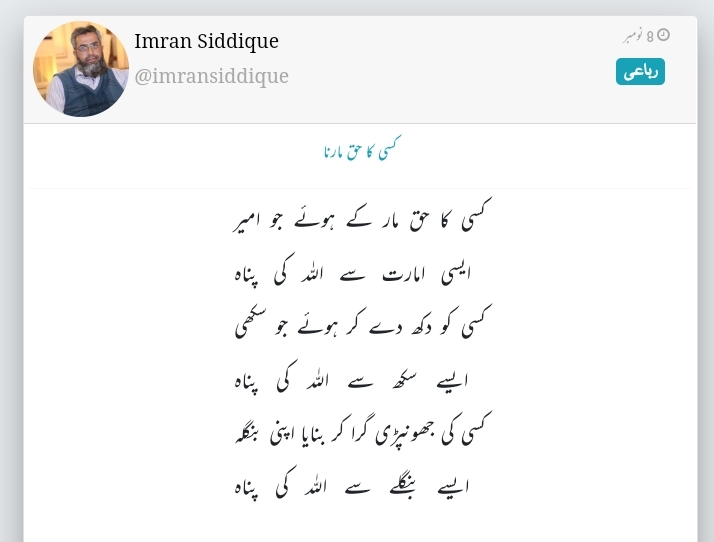 Imran Siddique
8 نومبر
@imransiddique
رباعی
کسی کا حق مارنا
کسی کا حق مار کے ہوئے جو امیر
ایسی امارت سے اللہ کی پناہ
کسی کو دکھ دے کر ہوئے جو سکھی
ایسے سکھ سے اللہ کی پناہ
کسی کی جھونپڑی گرا کر بنایا اپنی بنگلہ
ایسے بنگلے سے اللہ کی پناہ